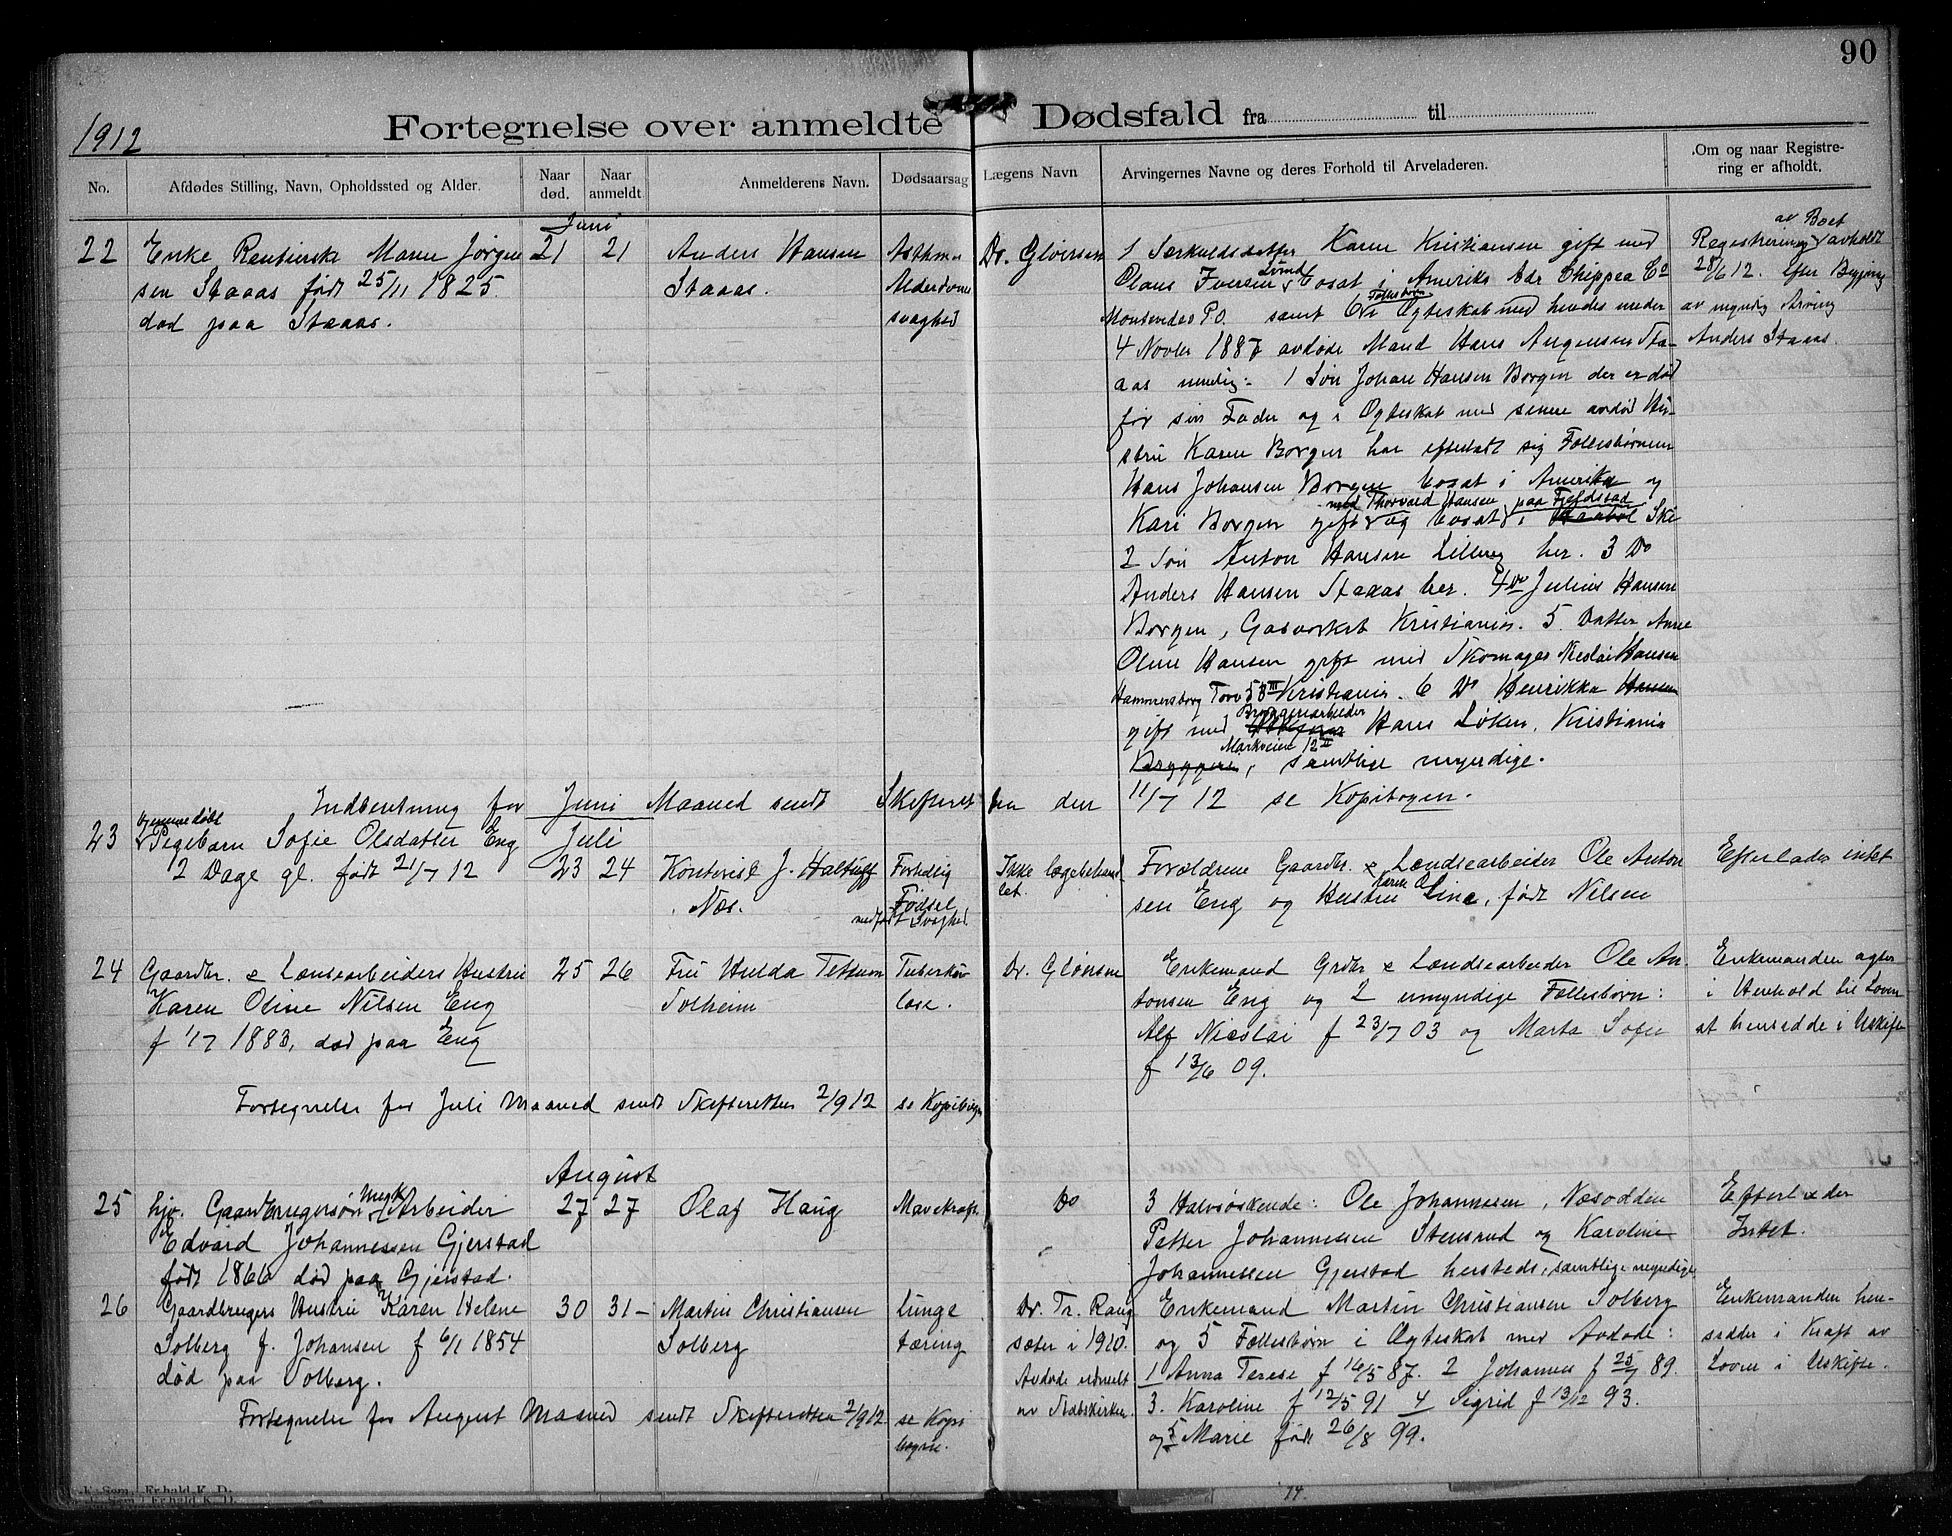 90
1912
Fortegnelse over anmeldte Dødsfald fra til
No.
Afdødes Stilling, Navn, Opholdssted og Alder.
Naar død.
Naar anmeldt
Anmelderens Navn.
Dødsaarsag
Lægens Navn
Arvingernes Navne og deres Forhold til Arveladeren.
Om og naar Registrering er afholdt.
Juni
22
Enke Rentierske Maren Jørgen
sen Staaas født 25/11 1825.
død paa Staaas.
21
21
Anders Hansen
Staaas.
Asthma
Alderdoms
svaghed
Dr. Glørsen
1 Særkuldsdatter Karen Kristiansen gift med
Olaus Iversen Lund bosat i Amerika Adr Chippea Co
Montevideo P.O. samt 6 Fællesbørn i Ægteskab med hendes under
4 Novbr 1887 avdøde Mand Hans Augensen Sta-
aas nemlig: 1 Søn Johan Hansen Borgen der er død
før sin Fader og i Ægteskab med senere avdød Hu-
stru Karen Borgen har efterladt sig Fællesbørnene
Hans Johansen Borgen bosat i Amerika og
med Thorvald Hansen paa Fjeldstad
Kari Borgen gift og bosat i Ski
2 Søn Anton Hansen Lilleng her. 3 Do
Anders Hansen Staaas her. 4 Do Julius Hansen
Borgen, Gasverket Kristiania. 5. Datter Anne
Oline Hansen gift med Skomager Nicolai Hansen
Hammersborg Torv 58 III Kristiania. 6 Do Henrikka Hansen
gift med Bryggeriarbeider Hans Løken, Kristiania
Markveien 12 II
Bryggeri, samtlige myndige.
av Boet
Registrering avholdt
28/6 12. efter Begjæring
av myndig Arving
Anders Staaas.
Indberetning for Juni Maaned sendt Skifteretten den 11/7 12 se Kopibogen.
Juli
23
hjemmedøbt
Pigebarn Sofie Olsdatter Eng
2 Dage gl. født 21/7 12
23
24
Kontorist J.
Næs.
Fortidlig
Fødsel
medfødt Svaghed
Ikke lægebehand
let.
Forældrene Gaardbr. & Lændsearbeider Ole Anton
sen Eng og Hustru Karen Oline, født Nilsen
Efterlader intet
24
Gaardbr. & Lænsearbeiders Hustru
Karen Oline Nilsen Eng
f 1/7 1883, død paa Eng
25
26
Fru Hulda Tettum
Solheim
Tuberku
lose.
Dr. Glørsen
Enkemand Grdbr & Lændsearbeider Ole An-
tonsen Eng og 2 umyndige Fællesbørn:
Alf Nicolai f 23/7 03 og Marta Sofie
f 13/6 09.
Enkemanden agter
i Henhold til Loven
at hensidde i Uskifte
Fortegnelse for Juli Maaned sendt Skifteretten 2/9 12 se Kopibogen
August
25
hjv. Gaardbrugersøn Arbeider
Edvard Johannessen Gjerstad
født 1866 død paa Gjerstad.
27
27
Olaf Haug
Mavekræft.
Do
3 Halvsøskende: Ole Johannessen, Næsodden
Petter Johannessen Stensrud og Karoline
Johannessen Gjerstad hersteds, samtlige myndige
Efterlader
Intet.
26
Gaardbrugers Hustru Karen Helene
Solberg f. Johansen f 6/1 1854
død paa Solberg.
30
31
Martin Christiansen
Solberg
Lunge
tæring
Dr. Tr. Raug
sæter i 1910.
Avdøde utmeldt
av Statskirken.
Enkemand Martin Christiansen Solberg
og 5 Fællesbørn i Ægteskab med Avdøde:
1 Anna Terese f 16/5 87. 2 Johannes f 25/7 89.
3. Karoline f 12/5 91 4 Sigrid f 13/12 93.
og 5 Marie født 26/8 99.
Enkemanden hen-
sidder i Kraft av
Loven i Uskifte.
Fortegnelse for August Maaned sendt Skifteretten 2/9 12 se Kopi
bogen.
14.